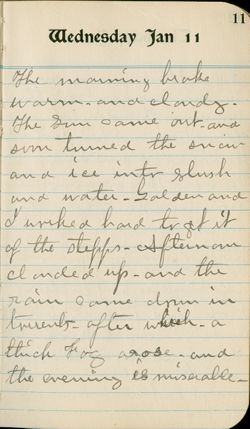 11
Wednesday Jan 11
The morning broke
warm - and cloudy -
The Sun came out - and
soon turned the snow
and ice into slush
and water - Golden and
I worked hard to get it
of the stepps - Afternoon
clouded up - and the
rain came down in
torrents - after which - a
thick Fog arose - and
the evening is miserable -